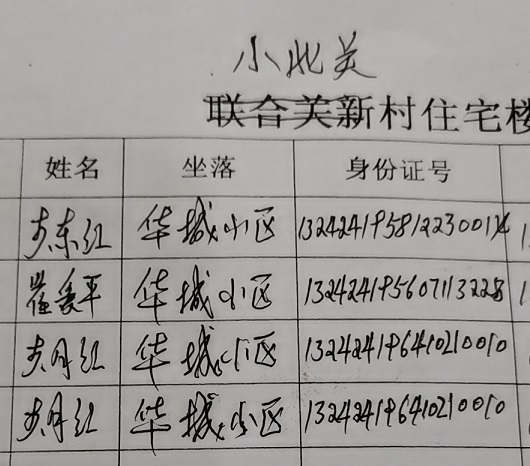 小北关
联合美新村住宅楼
姓名 坐落 身份证号
东红 华城小区
崔爱平 华城小区 132424195607113228
月红 华城小区 132424196410210010
月红 华城小区 132424196410210010